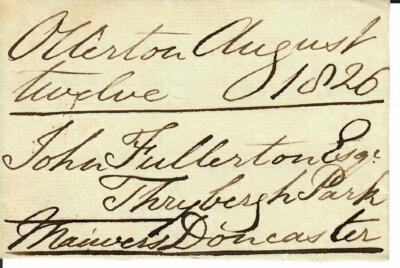 Ollerton August
twelve 1826
John Fullerton Esqr
Thrybergh Park
Doncaster